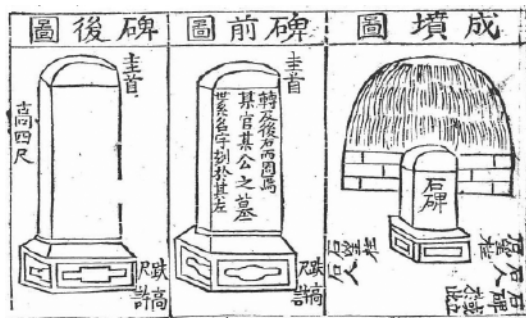 成墳圖
石碑
石望柱
石人
石望柱
石人
碑前圖
圭首
轉及後右而周焉
某官某公之墓
世系名字刻於其左
趺高
尺許
碑後圖
圭首
高四尺
趺高
尺許